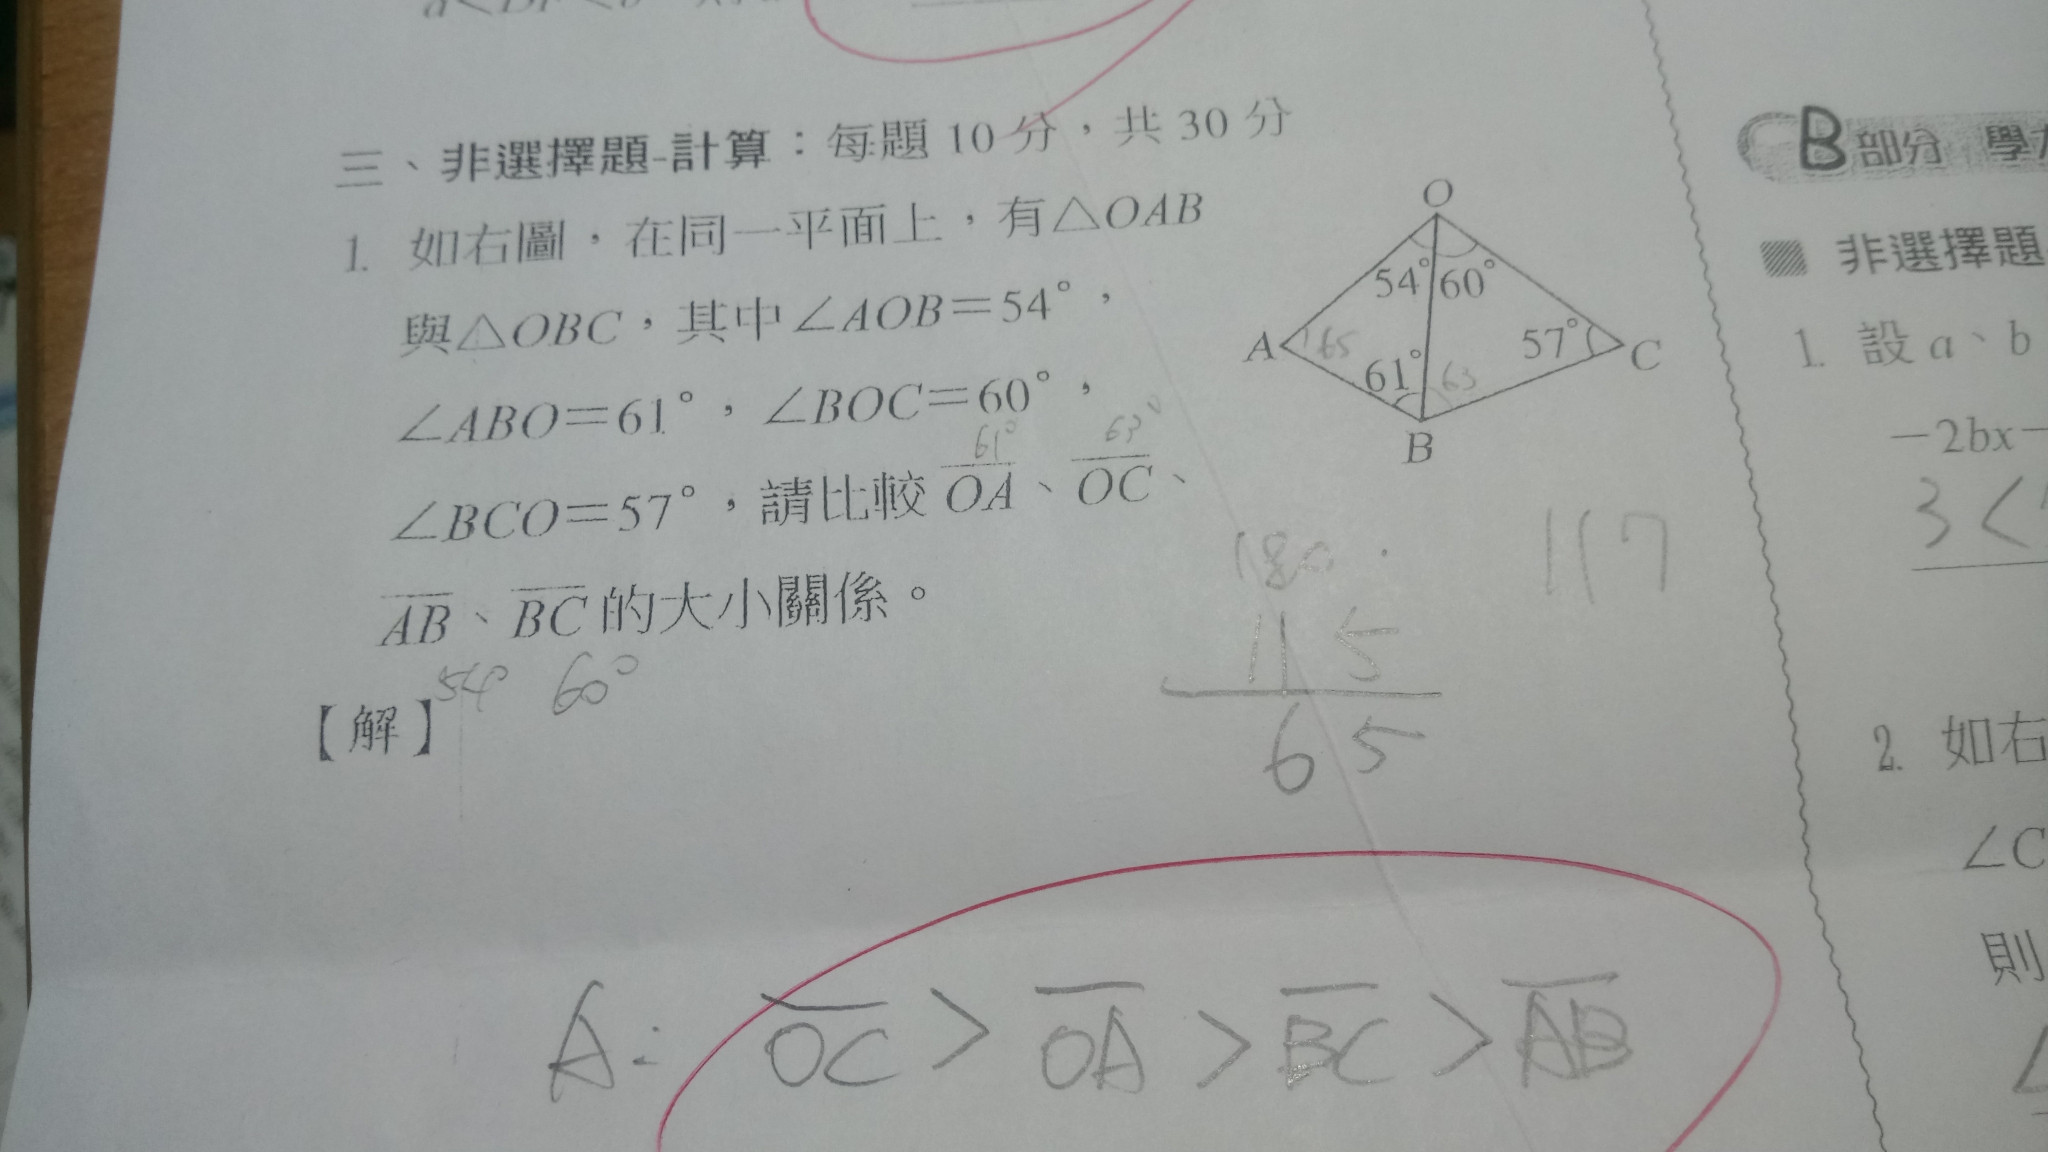 三、非選擇題-計算：每題 10 分，共 30 分
1. 如右圖，在同一平面上，有△OAB
與△OBC，其中∠AOB＝54°，
∠ABO＝61°，∠BOC＝60°，
61° 63°
∠BCO＝57°，請比較 OA、OC、
AB、BC 的大小關係。
54° 60°
【解】
O
54° 60°
A 65 57° C
61° 63
B
180 117
115
65
A: OC > OA > BC > AB
B 部分 學
非選擇題
1. 設 a、b
−2bx−
3<
2. 如右
∠C
則